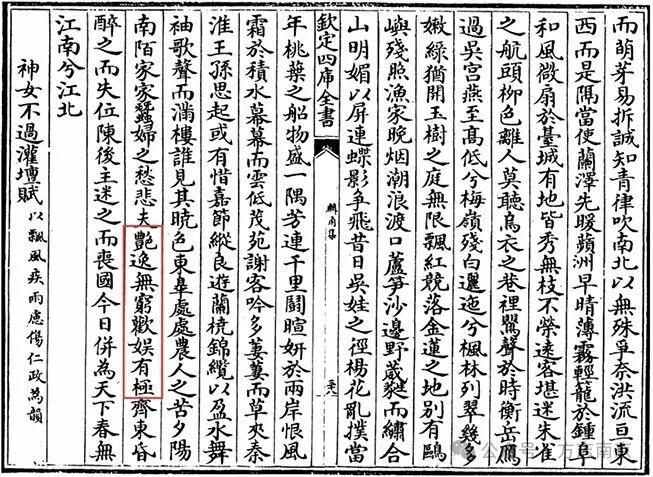 而萌芽易拆誠知青律吹南北以無殊爭奈洪流亘東
西而是隔當使蘭澤先暖蘋洲早晴薄霧輕籠於鍾阜
和風微扇於臺城有地皆秀無枝不榮遠客堪迷朱雀
之航頭柳色離人莫聽烏衣之巷裡鸎聲於時衡岳鴈
過吳宫燕至高低兮梅嶺殘白邐迤兮楓林列翠幾多
嫩緑猶開玉樹之庭無限飄紅競落金蓮之地别有鷗
嶼殘照漁家晚烟潮浪渡口蘆笋沙邊野葳蕤而繡合
山明媚以屏連蝶影争飛昔日吳娃之徑楊花亂撲當
欽定四庫全書
麟角集
年桃葉之船物盛一隅芳連千里鬬暄妍於兩岸恨風
霜於積水幕幕而雲低茂苑謝客吟多萋萋而草夾秦
淮王孫思起或有惜嘉節縱良遊蘭橈錦纜以盈水舞
袖歌聲而滿樓誰見其曉色東皋處處農人之苦夕陽
南陌家家蠶婦之愁悲夫艶逸無窮歡娱有極齊東昏
醉之而失位陳後主迷之而喪國今日併為天下春無
江南兮江北
神女不過灌壇賦 以飄風疾雨慮傷仁政為韻